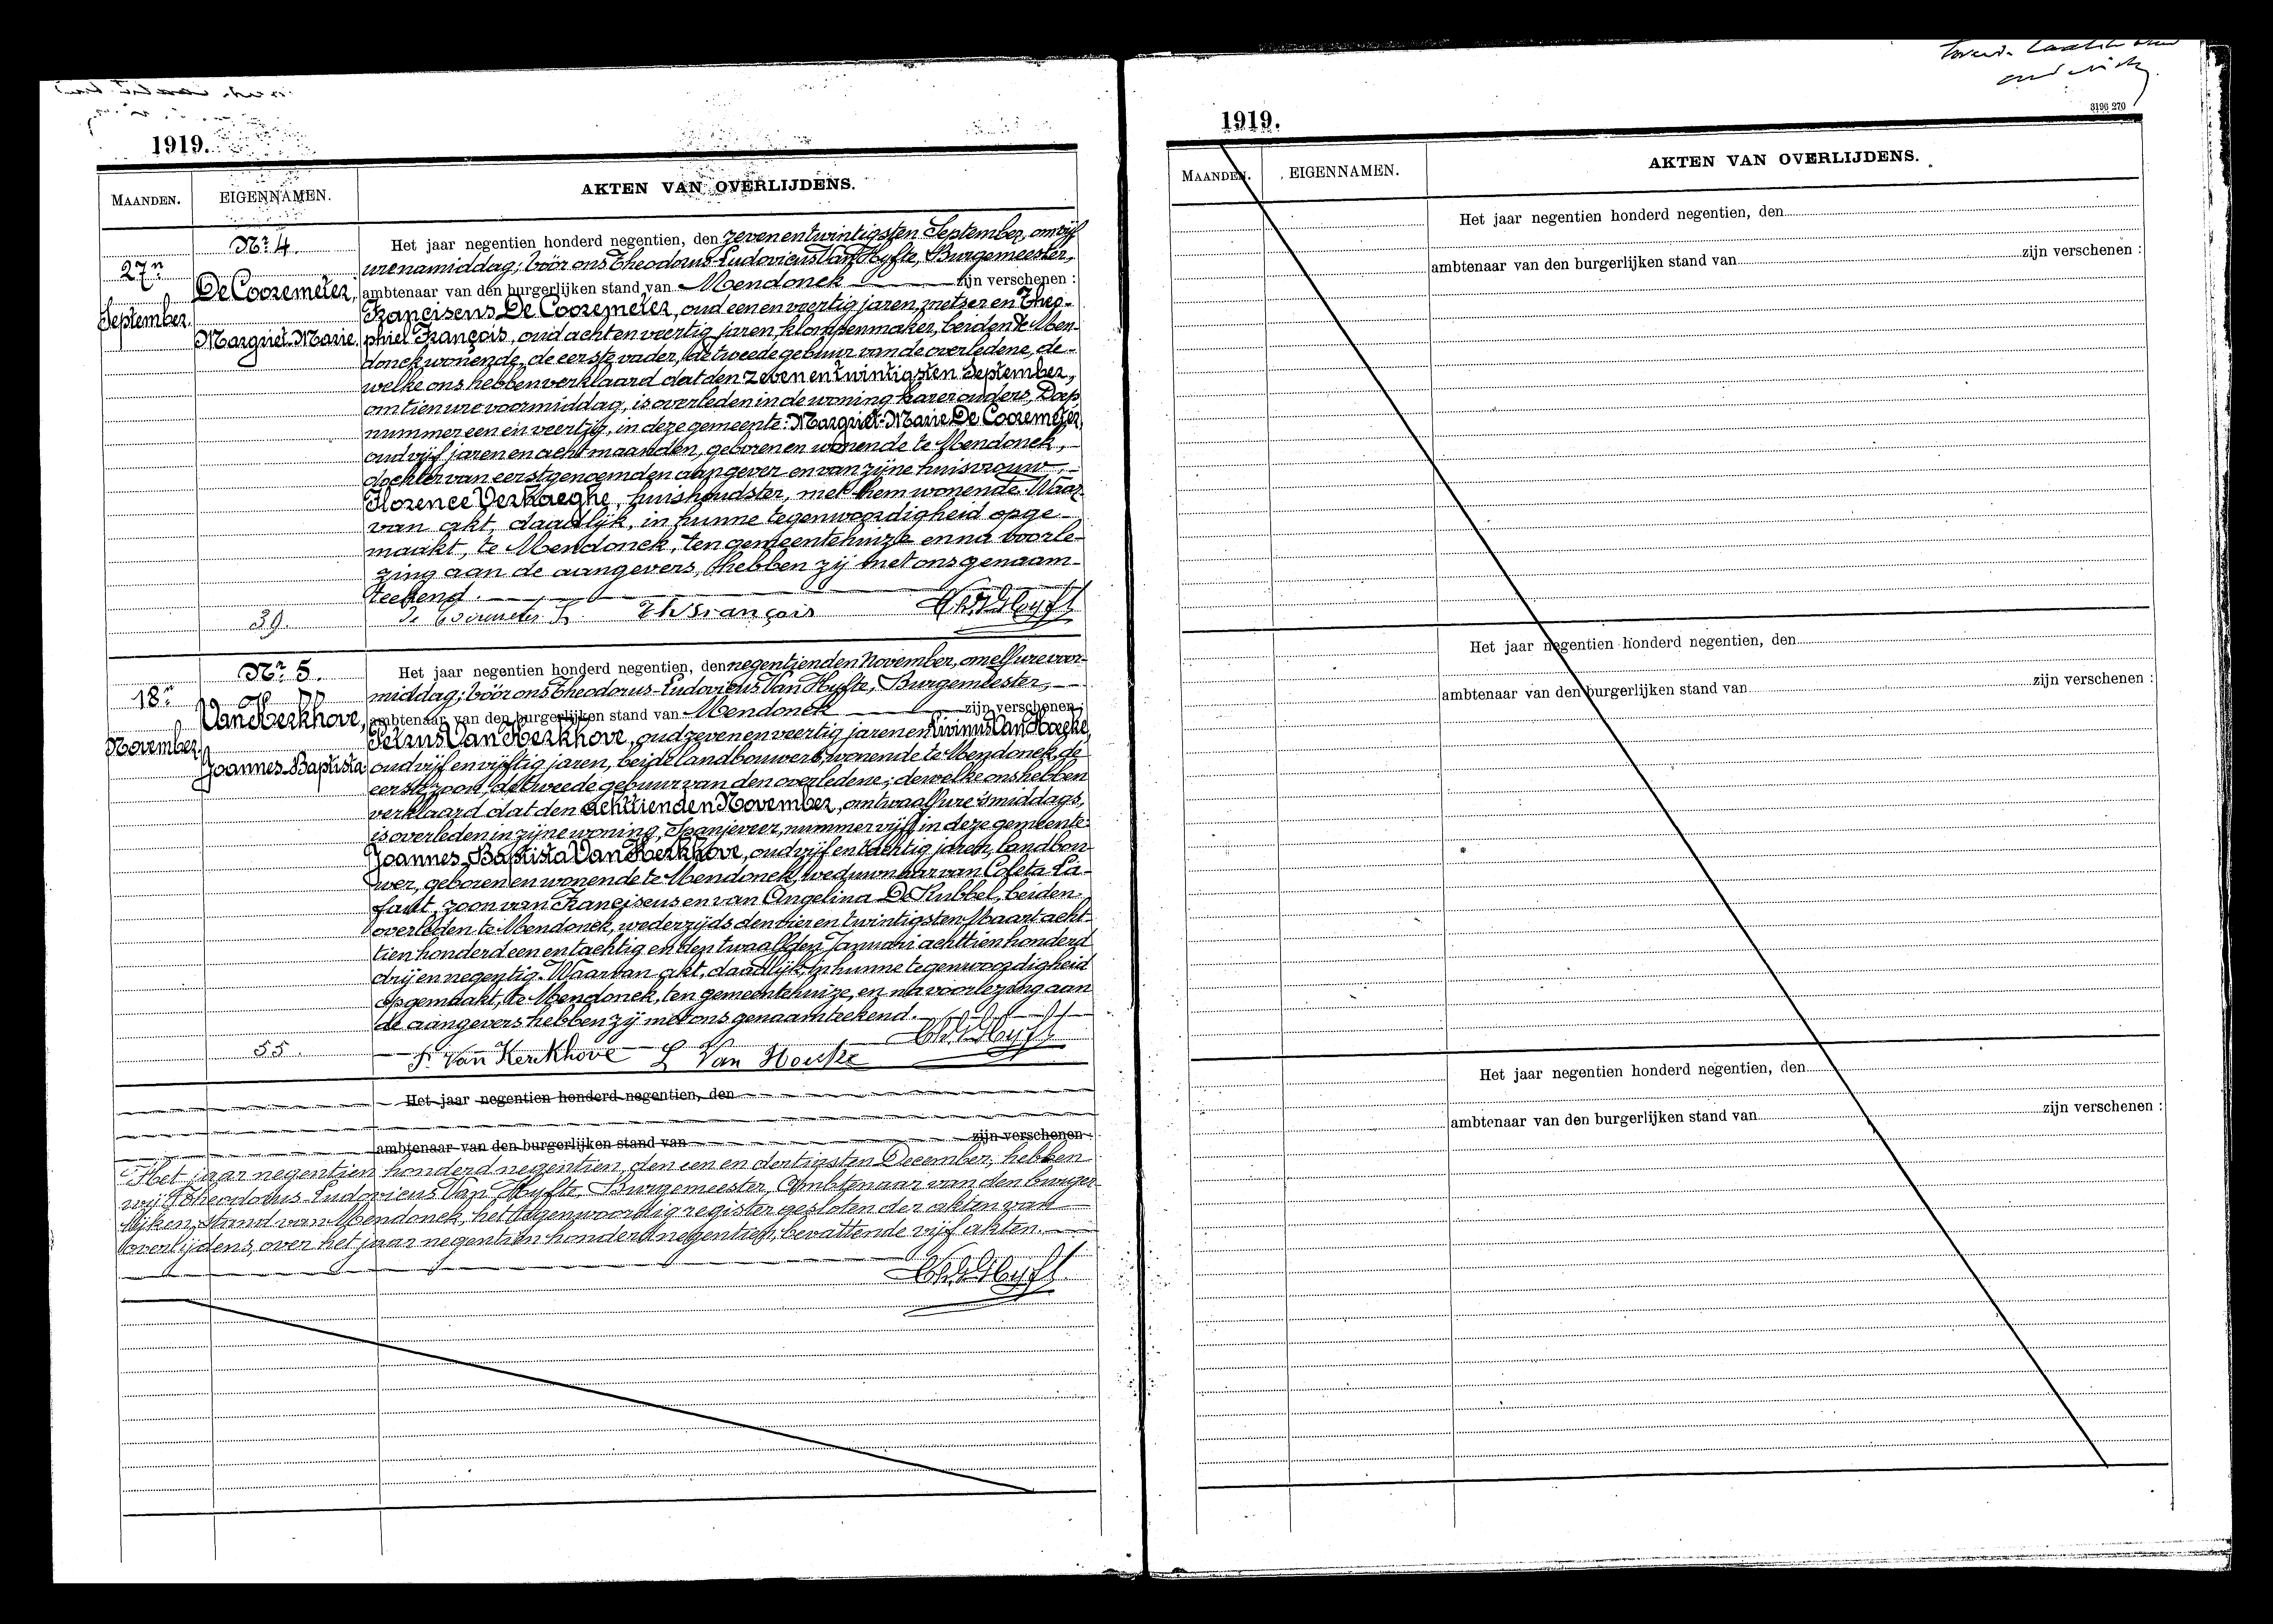 1919.
MAANDEN. EIGENNAMEN. AKTEN VAN OVERLIJDENS.
Nr. 4.
27n
September.
De Cooremeter,
Margriet-Marie.
Het jaar negentien honderd negentien, den zevenentwintigsten September, om vijf
ure namiddag; vóór ons Theodorus-Ludovicus Van Hyfte, Burgemeester,
ambtenaar van den burgerlijken stand van Mendonck zijn verschenen :
Franciscus De Cooremeter, oud een en veertig jaren, metser en Theo-
phiel François, oud acht en veertig jaren, klompenmaker, beiden te Men-
donck wonende, de eerste vader, de tweede gebuur van de overledene, de-
welke ons hebben verklaard dat den zeven en twintigsten September,
om tien ure voormiddag, is overleden in de woning harer ouders, Dorp
nummer een en veertig, in deze gemeente: Margriet-Marie De Cooremeter,
oud vijf jaren en acht maanden, geboren en wonende te Mendonck,
dochter van eerstgenoemden aangever en van zijne huisvrouw
Florence Verhaeghe, huishoudster, met hem wonende. Waar-
van akt, daadlijk, in hunne tegenwoordigheid opge-
maakt, te Mendonck, ten gemeentehuize en na voorle-
zing aan de aangevers, hebben zij met ons genaam-
teekend.
39.
De Cooremeter F. Th François Th. V Hyft
Nr. 5.
18n
November.
Van Kerkhove,
Joannes-Baptista.
Het jaar negentien honderd negentien, den negentienden November, om elf ure voor-
middag; vóór ons Theodorus-Ludovicus Van Hyfte, Burgemeester,
ambtenaar van den burgerlijken stand van Mendonck zijn verschenen :
Petrus Van Kerkhove, oud zeven en veertig jaren en Livinus Van Hoecke,
oud vijf en vijftig jaren, beide landbouwers, wonende te Mendonck, de
eerste zoon, de tweede gebuur van den overledene; dewelke ons hebben
verklaard dat den achttienden November, om twaalf ure 's middags,
is overleden in zijne woning, Spanjeveer, nummer vijf, in deze gemeente:
Joannes-Baptista Van Kerkhove, oud vijf en tachtig jaren, landbou-
wer, geboren en wonende te Mendonck, weduwnaar van Coleta La-
faut, zoon van Franciscus en van Angelina De Rubbel, beiden
overleden te Mendonck, wederzijds den vier en twintigsten Maart acht-
tien honderd een en tachtig en den twaalfden Januari achttien honderd
drij en negentig. Waarvan akt, daadlijk, in hunne tegenwoordigheid
opgemaakt, te Mendonck, ten gemeentehuize, en na voorlezing aan
de aangevers hebben zij met ons genaamteekend.
55.
P. Van Kerckhove L Van Hoecke Th. V Hyft
Het jaar negentien honderd negentien, den
ambtenaar van den burgerlijken stand van zijn verschenen :
Het jaar negentien honderd negentien, den een en dertigsten December, hebben
wij Theodorus-Ludovicus Van Hyfte, Burgemeester, Ambtenaar van den burger-
lijken stand van Mendonck, het tegenwoordig register gesloten der akten van
overlijdens, over het jaar negentien honderd negentien, bevattende vijf akten.
Th. V Hyft
3196 270
1919.
MAANDEN. EIGENNAMEN. AKTEN VAN OVERLIJDENS.
Het jaar negentien honderd negentien, den
ambtenaar van den burgerlijken stand van zijn verschenen :
Het jaar negentien honderd negentien, den
ambtenaar van den burgerlijken stand van zijn verschenen :
Het jaar negentien honderd negentien, den
ambtenaar van den burgerlijken stand van zijn verschenen :